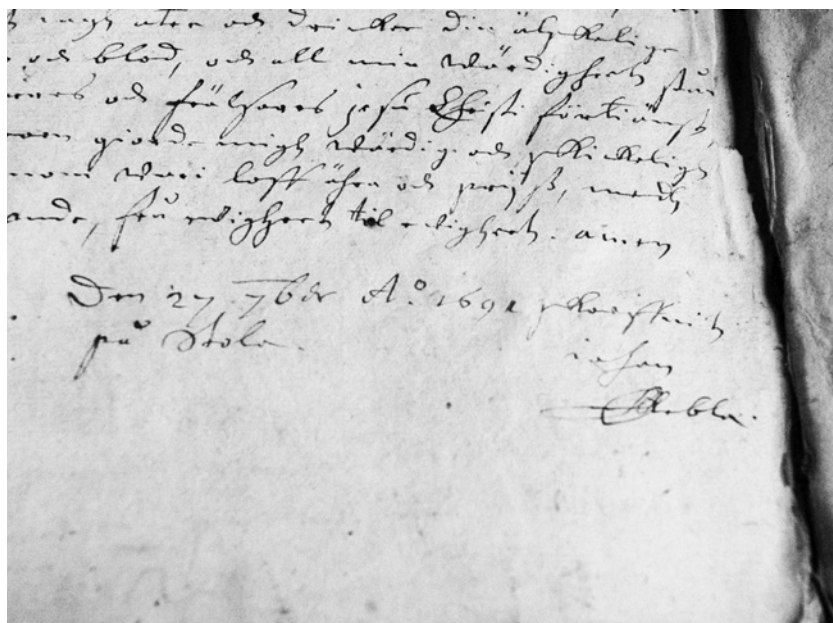 migh äter och dricker din älskelige
och blod, och all min wärdigheet
och frälsares jesu Christi förtiänst,
giorde migh wärdig och skickeligh
wari loff ähra och prijß, medh
ande, frå ewigheet til ewigheet. amen
Den 27 7b A:o 1691 skreffwit
på Stola
iohan
Ekebla.